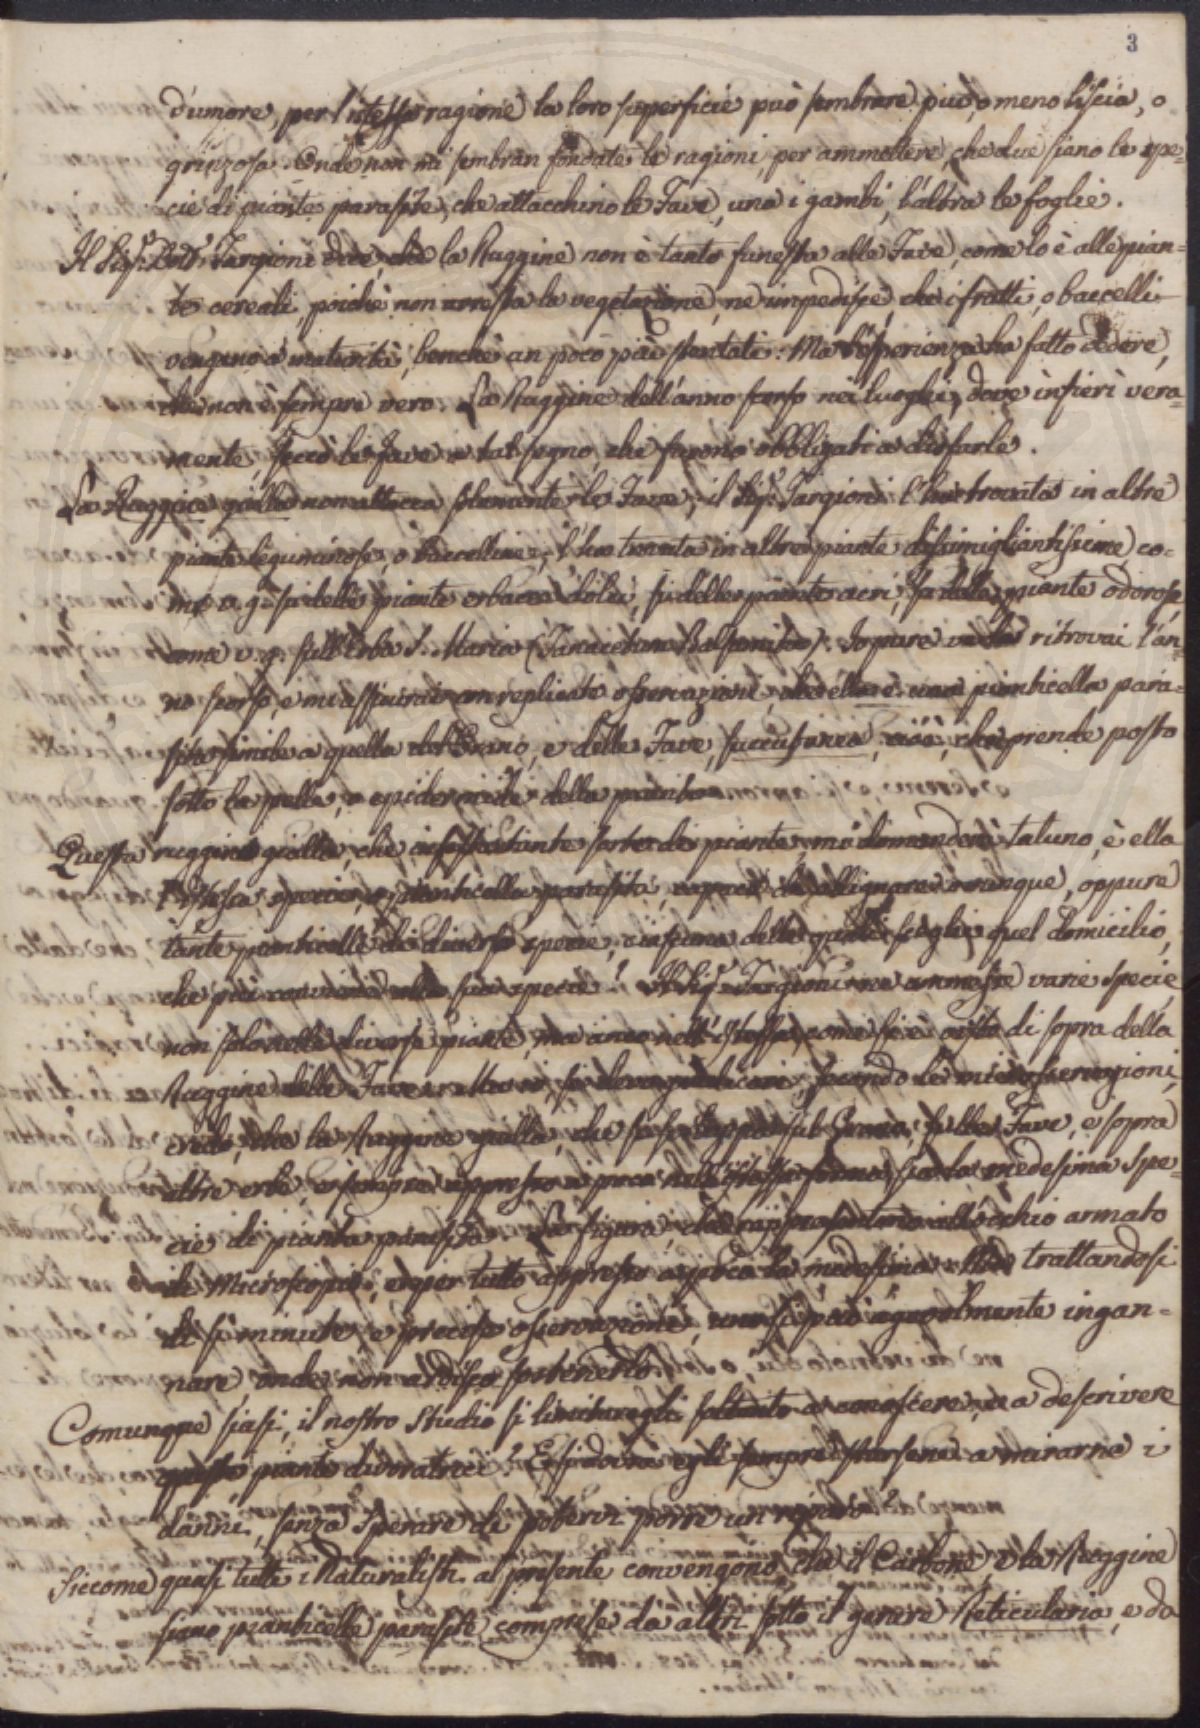 3
d'umore, per l'istessa ragione la loro superficie può sembrare più, o meno liscia, o
grinzosa. Onde non mi sembran fondate le ragioni, per ammettere, che due siano le spe=
cie di piante parasite, che attacchino le Fave, una i gambi, l'altra le foglie.
Il Sig.r Dott.r Targioni dice, che la Ruggine non è tanto funesta alle Fave, come lo è alle pian=
te cereali, poichè non arresta la vegetazione, nè impedisce, che i frutti, o baccelli
vengano a maturità, benchè un poco più stentati. Ma l'esperienza ha fatto vedere,
che non è sempre vero. La Ruggine dell'anno scorso nei luoghi, dove infierì vera=
mente, seccò le Fave a tal segno, che furono obbligati a disfarle.
La Ruggine gialla non attacca solamente le Fave; il Sig.r Targioni l'ha trovata in altre
piante leguminose, o baccelline; l'ha trovata in altre piante dissimigliantissime, co=
me v. g. su delle piante erbacee dolci, su delle piante acri, su delle piante odorose
come v. g. sull'Erba S. Maria (Tanacetum Balsamita). Io pure ve la ritrovai l'an=
no scorso, e mi assicurai con replicate osservazioni, che ella è una pianticella para=
sita simile a quella del Grano, e delle Fave, succutanea, cioè, che prende posto
sotto la pelle, o epidermide della pianta.
Questa ruggine gialla, che infesta tante sorte di piante, mi domanderà taluno, è ella
l'istessa specie, o pianticella parasita, capace di allignare ovunque, oppure
tante pianticelle di diverse specie, ciascuna delle quali sceglie quel domicilio,
che più conviene alla sua specie? Il Sig.r Targioni ne ammesse varie specie
non solo nelle diverse piante, ma anco nell'istessa, come si è visto di sopra della
Ruggine delle Fave secondo le mie osservazioni,
credo, che la Ruggine gialla, che si sviluppa sul Grano, sulle Fave, e sopra
altre erbe e sempre appresso a poco nell'istessa forma, sia la medesima spe=
cie di pianta parasita. La figura, che rappresentano all'occhio armato
di Microscopio, è per tutto appresso a poco la medesima. Ma trattandosi
di sì minute, e precise osservazioni, uno si può agevolmente ingan=
nare, onde non ardisco sostenerlo.
Comunque siasi, il nostro studio si limiterà egli soltanto a conoscere, e a descrivere
queste piante divoratrici? E si dovrà egli sempre starsene a mirarne i
danni, senza sperare di potervi porre un riparo?
Siccome quasi tutti i Naturalisti al presente convengono, che il Carbone, e la Ruggine
siano pianticelle parasite comprese da altri sotto il genere Reticularia, e da